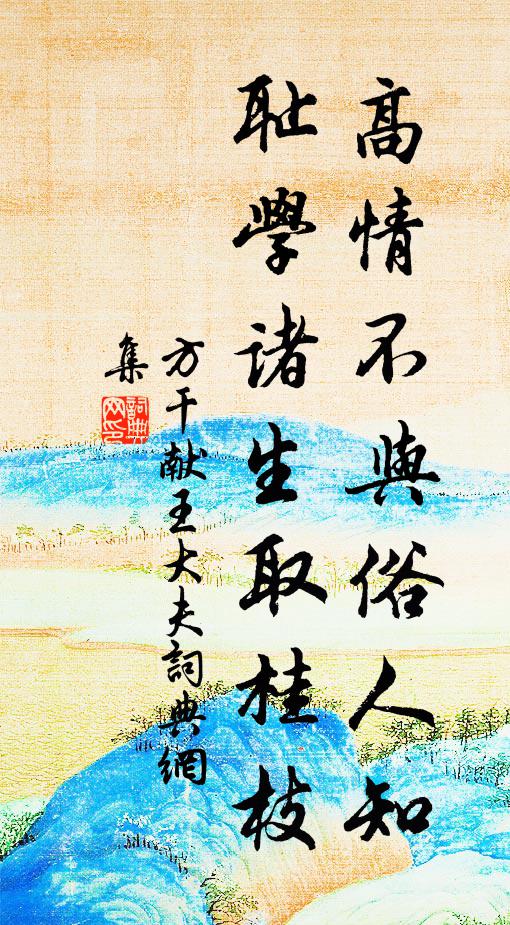 高情不與俗人知
恥學諸生取桂枝
方干献王大夫詞典網
集
詞典網印